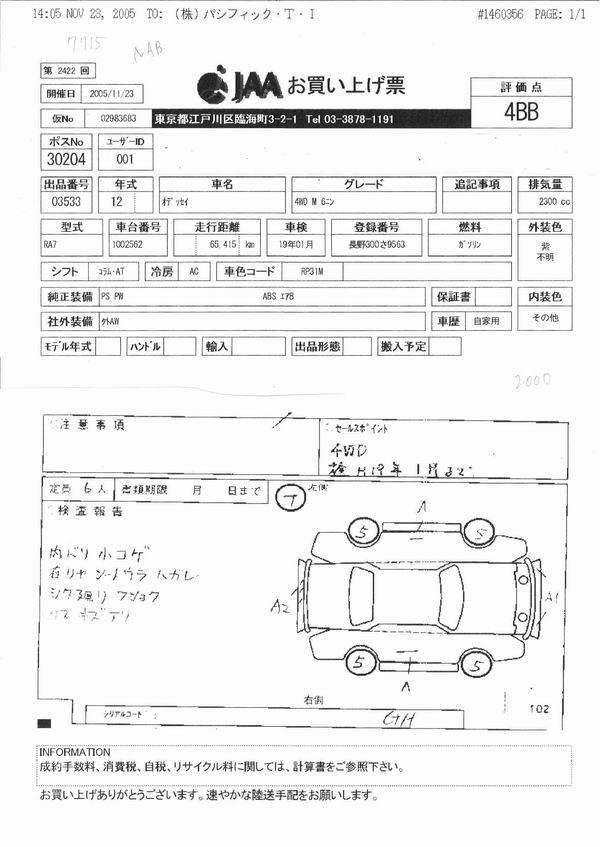 14:05 NOV 23, 2005 TO: (株)パシフィック・T・I #1460356 PAGE: 1/1
7715 NAB
第 2422 回
開催日 2005/11/23
JAA お買い上げ票
評価点
4BB
仮No 02983683
東京都江戸川区臨海町3-2-1 Tel 03-3878-1191
ポスNo ユーザーID
30204 001
出品番号 年式 車名 グレード 追記事項 排気量
03533 12 オデッセイ 4WD M 6ニン 2300 cc
型式 車台番号 走行距離 車検 登録番号 燃料 外装色
RA7 1002562 65,415 km 19年01月 長野300さ9563 ガソリン 紫
不明
シフト コラム・AT 冷房 AC 車色コード RP31M
純正装備 PS PW ABS エアB 保証書 内装色
社外装備 ケガAW 車歴 自家用 その他
モデル年式 ハンドル 輸入 出品形態 搬入予定
2000
注意事項 セールスポイント
4WD
検 H19年1月まで
定員 6人 書類期限 月 日まで
T 左側
検査報告
内ドリ 小コゲ
ハガレ
A
5 5
A2 A1
5 5
A
右側
102
シリアルコード
GH
INFORMATION
成約手数料、消費税、自税、リサイクル料に関しては、計算書をご参照下さい。
お買い上げありがとうございます。速やかな陸送手配をお願いします。